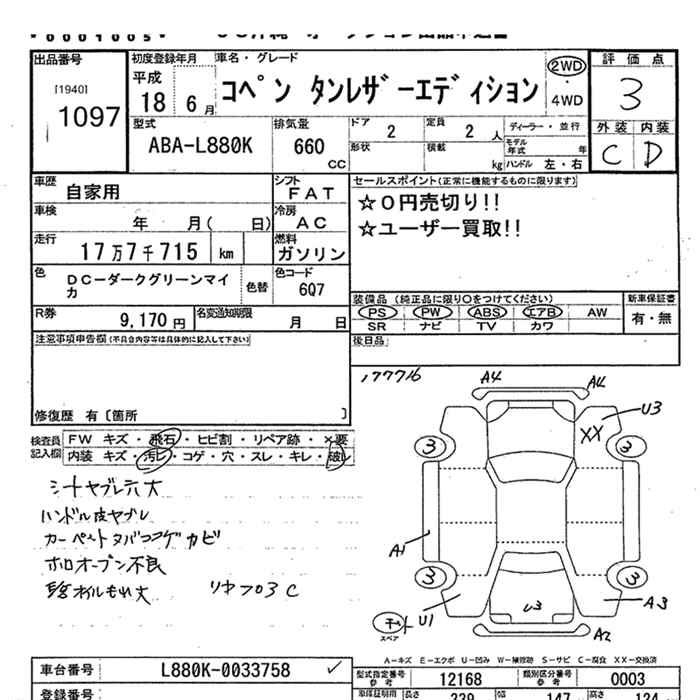 0001005
出品番号
[1940]
1097
初度登録年月
平成
18 6月
車名・グレード
コペン タンレザーエディション
2WD
・
4WD
評 価 点
3
外装 内装
C D
型式
ABA-L880K
排気量
660
CC
ドア
2
定員
2 人
形状
積載
kg
ディーラー・並行
モデル年式 年
ハンドル 左・右
車歴
自家用
シフト
FAT
車検
年 月( 日)
冷房
AC
走行
17万7千715 km
燃料
ガソリン
色
DC-ダークグリーンマイカ
色替
色コード
6Q7
R券
9,170円
名変通知期限
月 日
セールスポイント(正常に機能するものに限ります)
☆0円売切り!!
☆ユーザー買取!!
装備品 (純正品に限り○をつけてください)
PS PW ABS エアB AW
SR ナビ TV カワ
新車保証書
有・無
注意事項申告欄(不具合内容等は具体的に記入して下さい)
後日品
修復歴 有〔箇所 〕
177716
検査員記入欄
FW キズ・飛石・ヒビ割・リペア跡・×要
内装 キズ・汚レ・コゲ・穴・スレ・キレ・破レ
シートヤブレ穴大
ハンドル皮ヤブレ
カーペットタバココゲカビ
ホロオープン不良
A4 A4
U3
XX
3 3
A1
3 3
U1 U3 A3
A2
スペア
A-キズ E-エクボ U-凹み W-補修跡 S-サビ C-腐食 XX-交換済
車台番号
L880K-0033758
型式指定番号
参考
12168
類別区分番号
参考
0003
登録番号
車庫証明用
長さ
339
幅
147
高さ
124